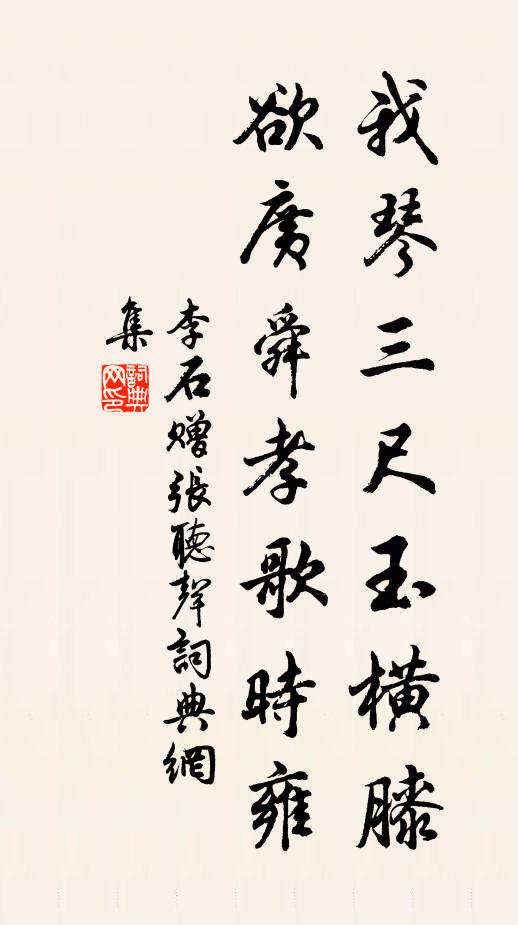 我琴三尺玉橫膝
欲廣舜孝歌時雍
李石贈張聽聲詞典網
集
詞典網印